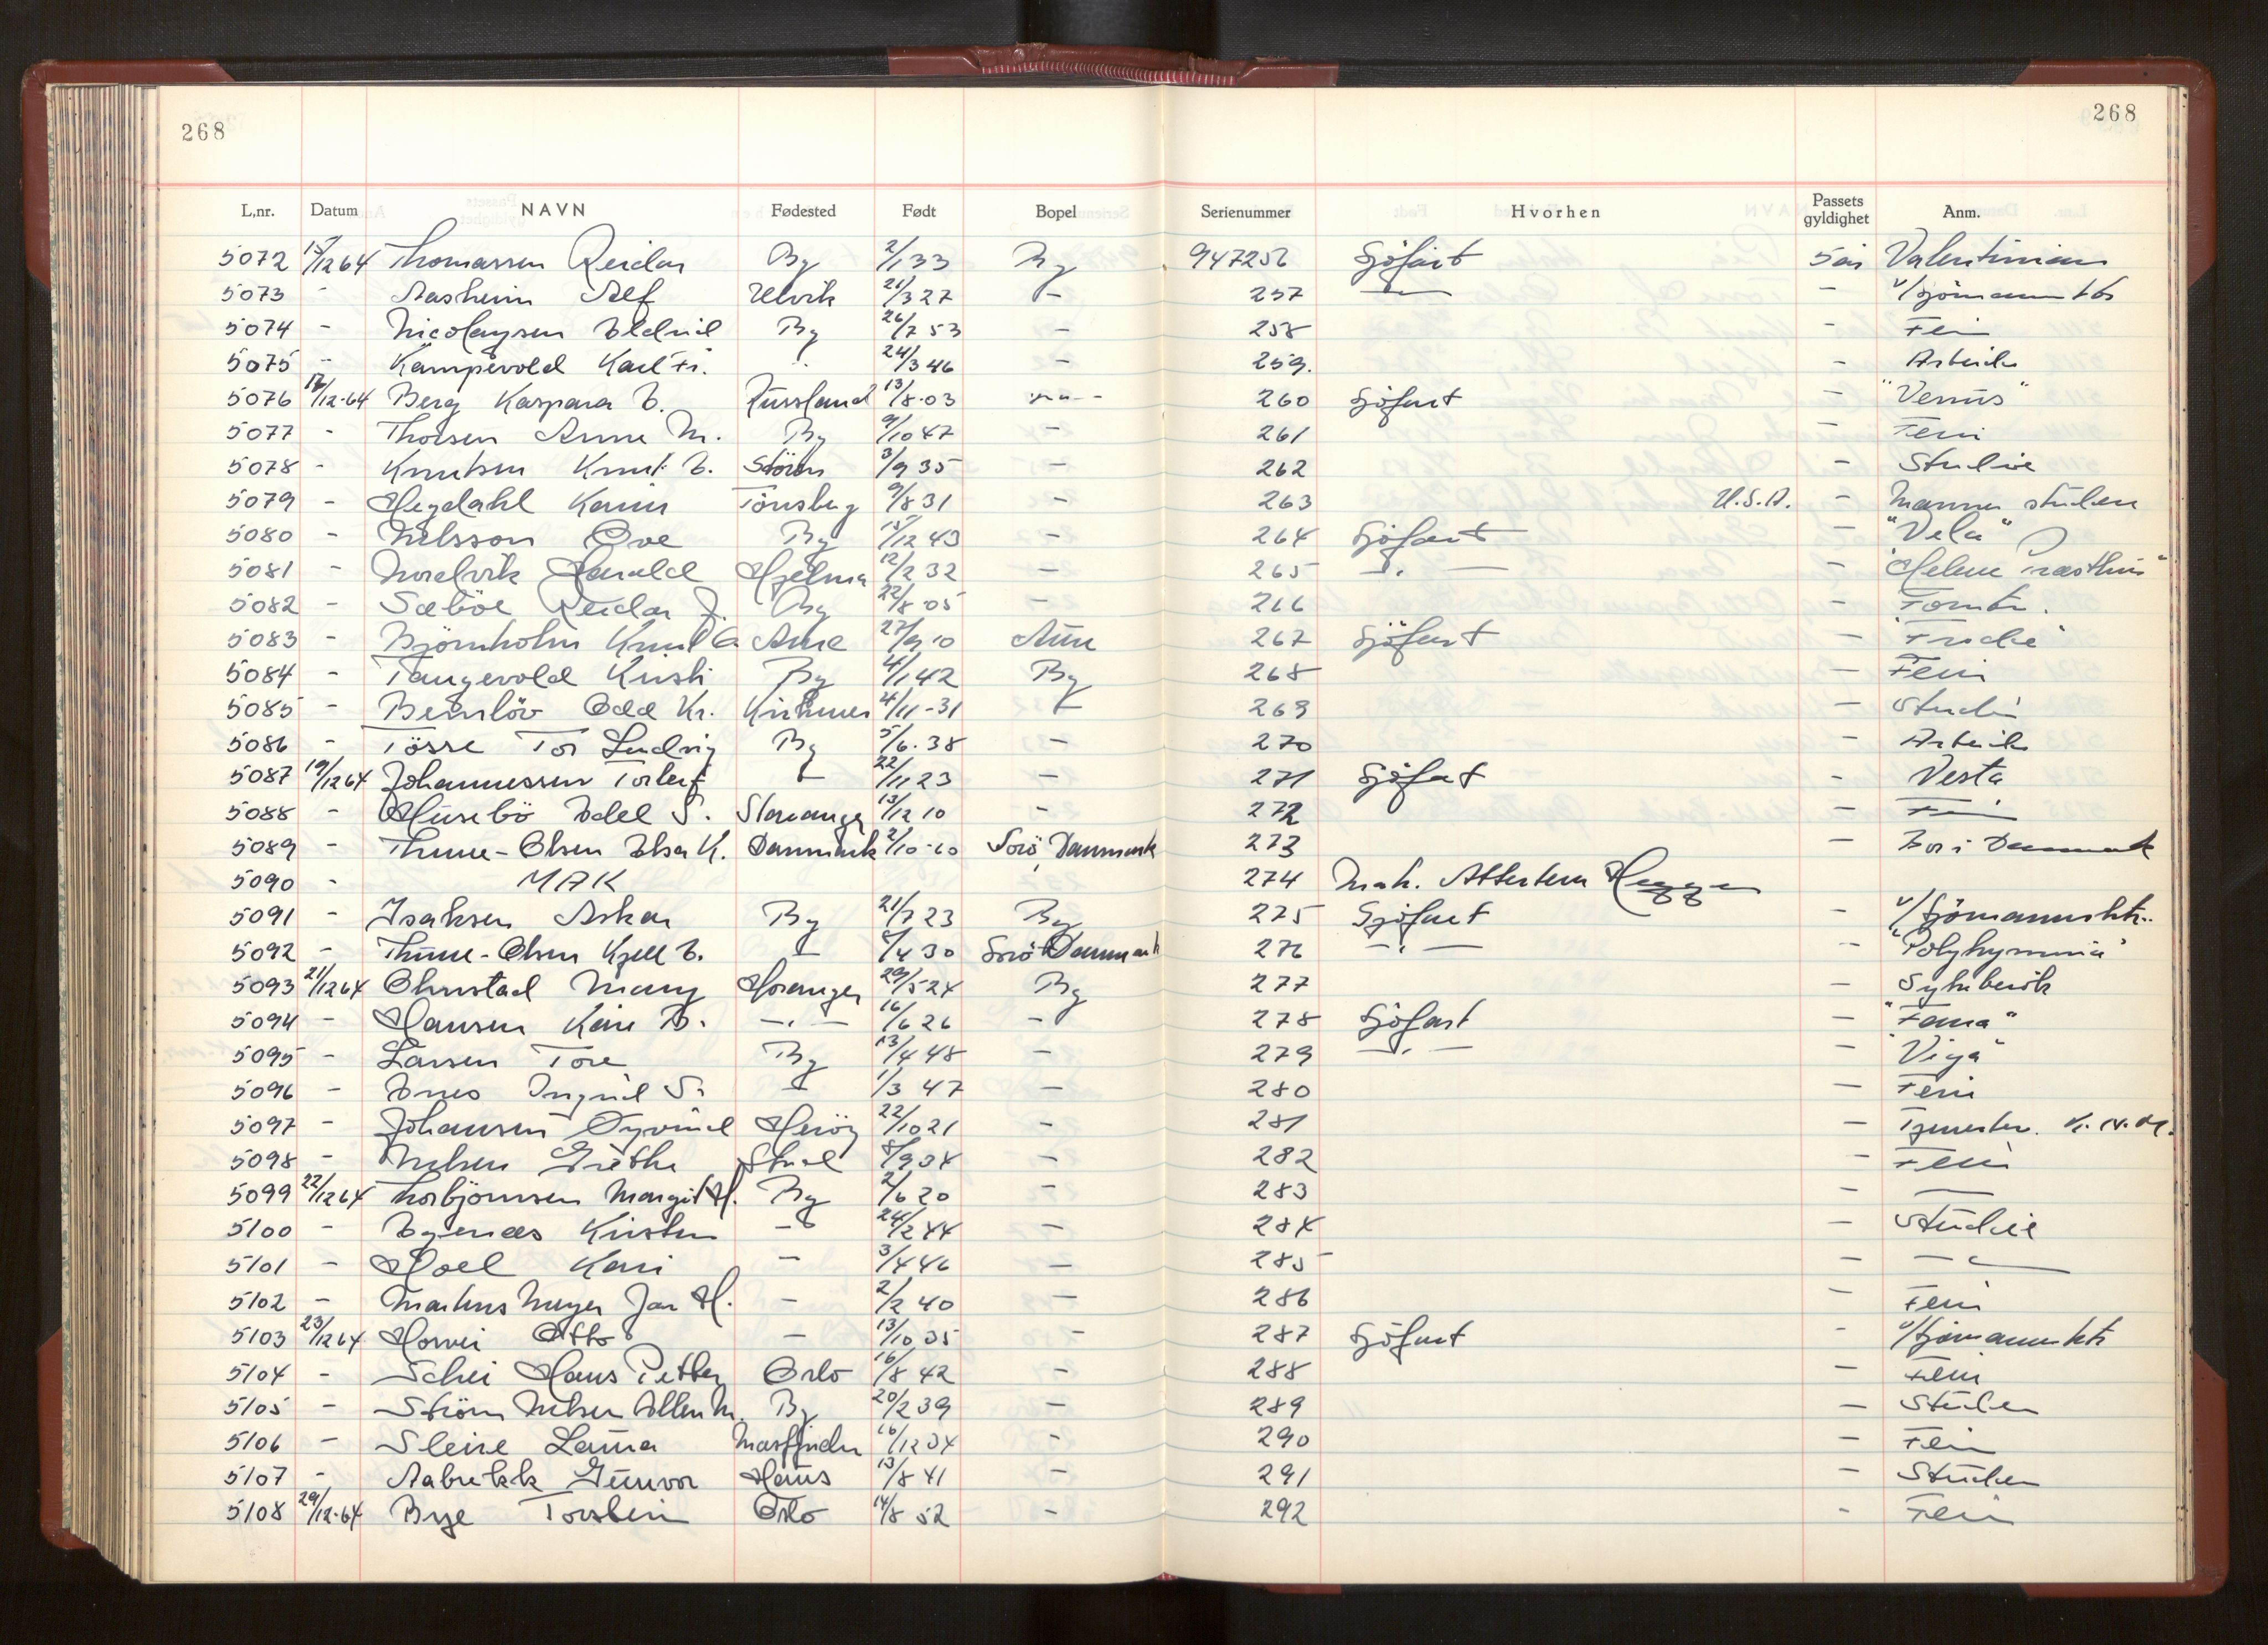 268 268
L,nr. Datum NAVN Fødested Født Bopel Serienummer Hvorhen Passets gyldighet Anm.
5072 15/12 64 Thomassen Reidar By 2/1 33 By 947256 Sjöfart 5 år Valentinian
5073 - Aasheim Alf Ulvik 21/3 27 - 257 - - v/sjömannsktr
5074 - Nicolaysen Eldrid By 26/7 53 - 258 - Feri
5075 - Kampevold Karl Fr. 24/3 46 - 259. - Arbeide
5076 17/12-64 Berg Kaspara E. Russland 13/8-03 -"- 260 Sjöfart - "Venus"
5077 - Thorsen Anne M. By 9/10 47 - 261 - Feri
5078 - Knutsen Knut E. Stören 3/9 35 - 262 - Studie
5079 - Hegdahl Karin Tönsberg 9/8 31 - 263 U.S.A. - Mannen studere
5080 - Nilsson Ove By 15/12 43 - 264 Sjöfart - "Vela"
5081 - Nordvik Harald Hjelma 12/2 32 - 265 -"- - "Helene Presthus"
5082 - Sæböe Reidar J. By 22/8-05 - 266 -
5083 - Björnholm Knut A Aure 27/9 10 Aure 267 Sjöfart -
5084 - Tangevold Kirsti By 4/1 42 By 268 - Feri
5085 - Bernlöv Odd Kr. 4/11-31 - 269 - Studie
5086 - Tösse Tor Ludvig By 5/6-38 - 270 - Arbeide
5087 19/12 64 Johannessen Torleif - 22/11 23 - 271 Sjöfart - Vesta
5088 - Husebö Edel S. Stavanger 13/12 10 - 272 - Feri
5089 - Thune-Olsen Elsa K. Danmark 2/10-60 Sorö Danmark 273 - Bor i Danmark
5090 - MAK 274 Mak. Attesteres
5091 - Isaksen Askar By 21/7 23 By 275 Sjöfart - v/sjömannsktr.
5092 - Thune-Olsen Kjell E. - 8/4 30 Sorö Danmark 276 -"- - "Polyhymnia"
5093 21/12 64 Ohnstad Mary Hosanger 29/5 24 By 277 - Sykebesök
5094 - Hansen Kåre B. -"- 16/6 26 - 278 Sjöfart - "Fama"
5095 - Larsen Tore By 13/4 48 - 279 -"- - "Viga"
5096 - Enes Ingrid S. - 1/3 47 - 280 - Feri
5097 - Johansen Öyvind Heröy 22/10 21 - 281 - Tjenester.
5098 - Nilsen Grethe 8/9 34 - 282 - Feri
5099 22/12 64 Thorbjörnsen Margit H. By 2/6 20 - 283 - -
5100 - Egenæs Kirsten - 24/2 44 - 284 - Studie
5101 - Hoel Kari - 3/4 46 - 285 - -
5102 - Martens Meyer Jan H. - 2/2 40 - 286 - Feri
5103 23/12 64 Horvei Otto - 13/10 35 - 287 Sjöfart - v/sjömannsktr
5104 - Schei Hans Petter Oslo 16/8 42 - 288 - Feri
5105 - Ström Nilsen Ellen M. By 20/2 39 - 289 - Studier
5106 - Sleire Laura Masfjorden 16/12 34 - 290 - Feri
5107 - Aabrekk Gunvor Haus 13/8 41 - 291 - Studier
5108 29/12-64 Brye Torstein Oslo 14/8 52 - 292 - Feri